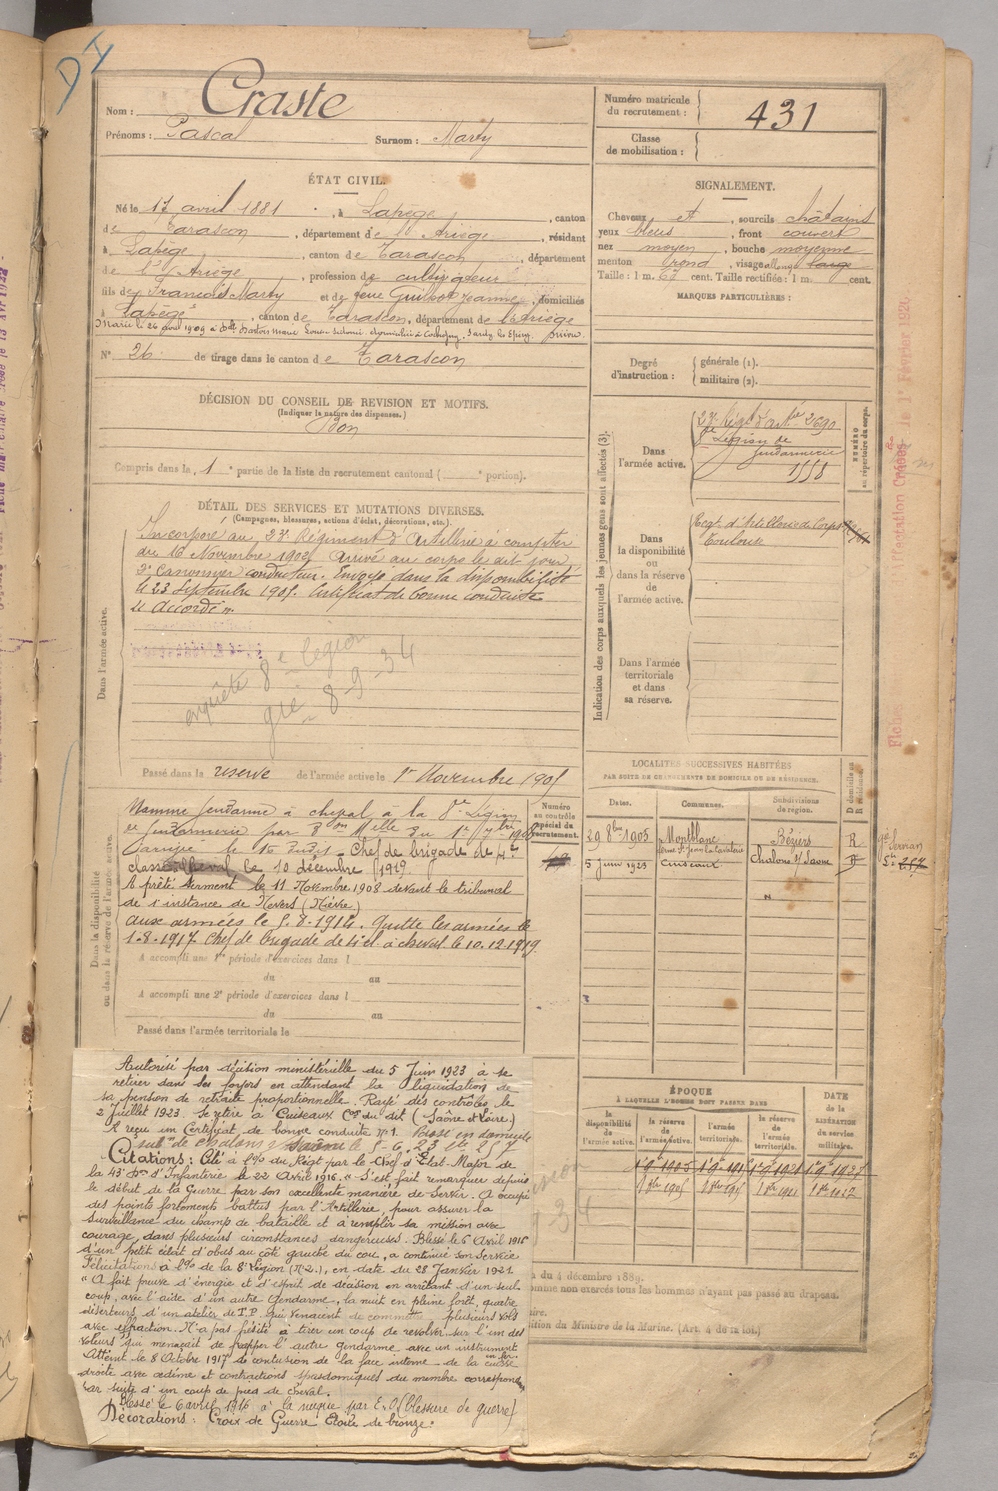 D I
Nom : Craste
Prénoms : Pascal Surnom : Marty
Numéro matricule
du recrutement : 431
Classe
de mobilisation :
ÉTAT CIVIL.
Né le 17 avril 1881, à Lapège, canton
de Tarascon, département de l'Ariège, résidant
à Lapège, canton de Tarascon, département
de l'Ariège, profession de cultivateur
fils de François Marty et de feue Guilbot Jeanne, domiciliés
à Lapège, canton de Tarascon, département de l'Ariège
N° 26 de tirage dans le canton de Tarascon
SIGNALEMENT.
Cheveux et, sourcils châtains
yeux bleus, front couvert
nez moyen, bouche moyenne
menton rond, visage allongé large
Taille : 1 m. 67 cent. Taille rectifiée : 1 m. cent.
MARQUES PARTICULIÈRES :
Degré
d'instruction : générale (1).
militaire (2).
DÉCISION DU CONSEIL DE REVISION ET MOTIFS.
(Indiquer la nature des dispenses.)
Bon
Compris dans la 1e partie de la liste du recrutement cantonal ( e portion).
DÉTAIL DES SERVICES ET MUTATIONS DIVERSES.
(Campagnes, blessures, actions d'éclat, décorations, etc.)
Dans l'armée active.
Incorporé au 23e Régiment d'Artillerie à compter
du 16 Novembre 1902. Arrivé au corps le dit jour
2e Canonnier conducteur. Envoyé dans la disponibilité
le 23 Septembre 1905. Certificat de bonne conduite
" Accordé ".
enquête 8e légion
gie 8-9-34
Passé dans la réserve de l'armée active le 1er Novembre 1905
Indication des corps auxquels les jeunes gens sont affectés (3).
NUMÉRO
au répertoire du corps.
Dans
l'armée active.
23e Régt d'Art. 2690
8e Légion de
Gendarmerie
1558
Dans
la disponibilité
ou
dans la réserve
de
l'armée active.
Regt d'Artillerie de Corps
Toulouse
Dans l'armée
territoriale
et dans
sa réserve.
LOCALITÉS SUCCESSIVES HABITÉES
PAR SUITE DE CHANGEMENTS DE DOMICILE OU DE RÉSIDENCE.
Dates. Communes. Subdivisions
de région. D domicile ou
R résidence.
29 8bre 1905 Montblanc Béziers R
5 Juin 1923 Cuiseaux Chalons s/ Saone D
Dans la disponibilité
ou dans la réserve de l'armée active.
Numéro
au contrôle
spécial du
recrutement.
Nommé Gendarme à cheval à la 8e Légion
de Gendarmerie par
Chef de brigade de 4e
classe à cheval, le 10 décembre 1919.
A prêté serment le 11 Novembre 1908 devant le tribunal
de 1e instance de Nevers (Nièvre)
aux armées le 5-8-1914. Quitte les armées le
1-8-1917. Chef de brigade de 4e cl. à cheval le 10.12.1919
A accompli une 1re période d'exercices dans l
du au
A accompli une 2e période d'exercices dans l
du au
Passé dans l'armée territoriale le
Autorisé par décision ministérielle du 5 Juin 1923 à se
retirer dans ses foyers en attendant la liquidation de
sa pension de retraite proportionnelle. Rayé des contrôles le
2 Juillet 1923. Se retire à Cuiseaux Con du dit (Saône et Loire.)
A reçu un Certificat de bonne conduite n° 1. Passé en domicile
sub. de Chalon s/ Saône le 5-6-23 257
Citations : Cité à l'ordre du Régt par le Chef d'État-Major de
la 43e Don d'Infanterie le 23 Avril 1916. " S'est fait remarquer depuis
le début de la Guerre par son excellente manière de Servir. A occupé
des points fortements battus par l'Artillerie, pour assurer la
Surveillance du champ de bataille et a rempli sa mission avec
courage, dans plusieurs circonstances dangereuses. Blessé le 6 Avril 1916
d'un petit éclat d'obus au côté gauche du cou, a continué son service
Félicitations à l'ordre de la 8e Légion (n° 2.), en date du 28 Janvier 1921
" A fait preuve d'énergie et d'esprit de décision en arrêtant d'un seul
coup, avec l'aide d'un autre Gendarme, la nuit en pleine forêt, quatre
déserteurs d'un atelier de T.P. qui venaient de commettre plusieurs vols
avec effraction. N'a pas hésité à tirer un coup de revolver sur l'un des
voleurs qui menaçait de frapper l'autre gendarme avec un instrument
en fer.
Atteint le 8 Octobre 1917 de contusion de la face interne de la cuisse
droite avec œdème et contractions spasmodiques du membre correspond
par suite d'un coup de pied de cheval.
Blessé le 6 avril 1916 à la nuque par E.O (blessure de guerre)
Décorations : Croix de Guerre Etoile de bronze.
ÉPOQUE
À LAQUELLE L'HOMME DOIT PASSER DANS
la
disponibilité
de
l'armée active.
la réserve
de
l'armée active.
l'armée
territoriale.
la réserve
de
l'armée
territoriale.
DATE
de la
LIBÉRATION
du service
militaire.
n du 4 décembre 1889.
omme non exercés tous les hommes n'ayant pas passé au drapeau.
aire.
ition du Ministre de la Marine. (Art. 4 de la loi.)